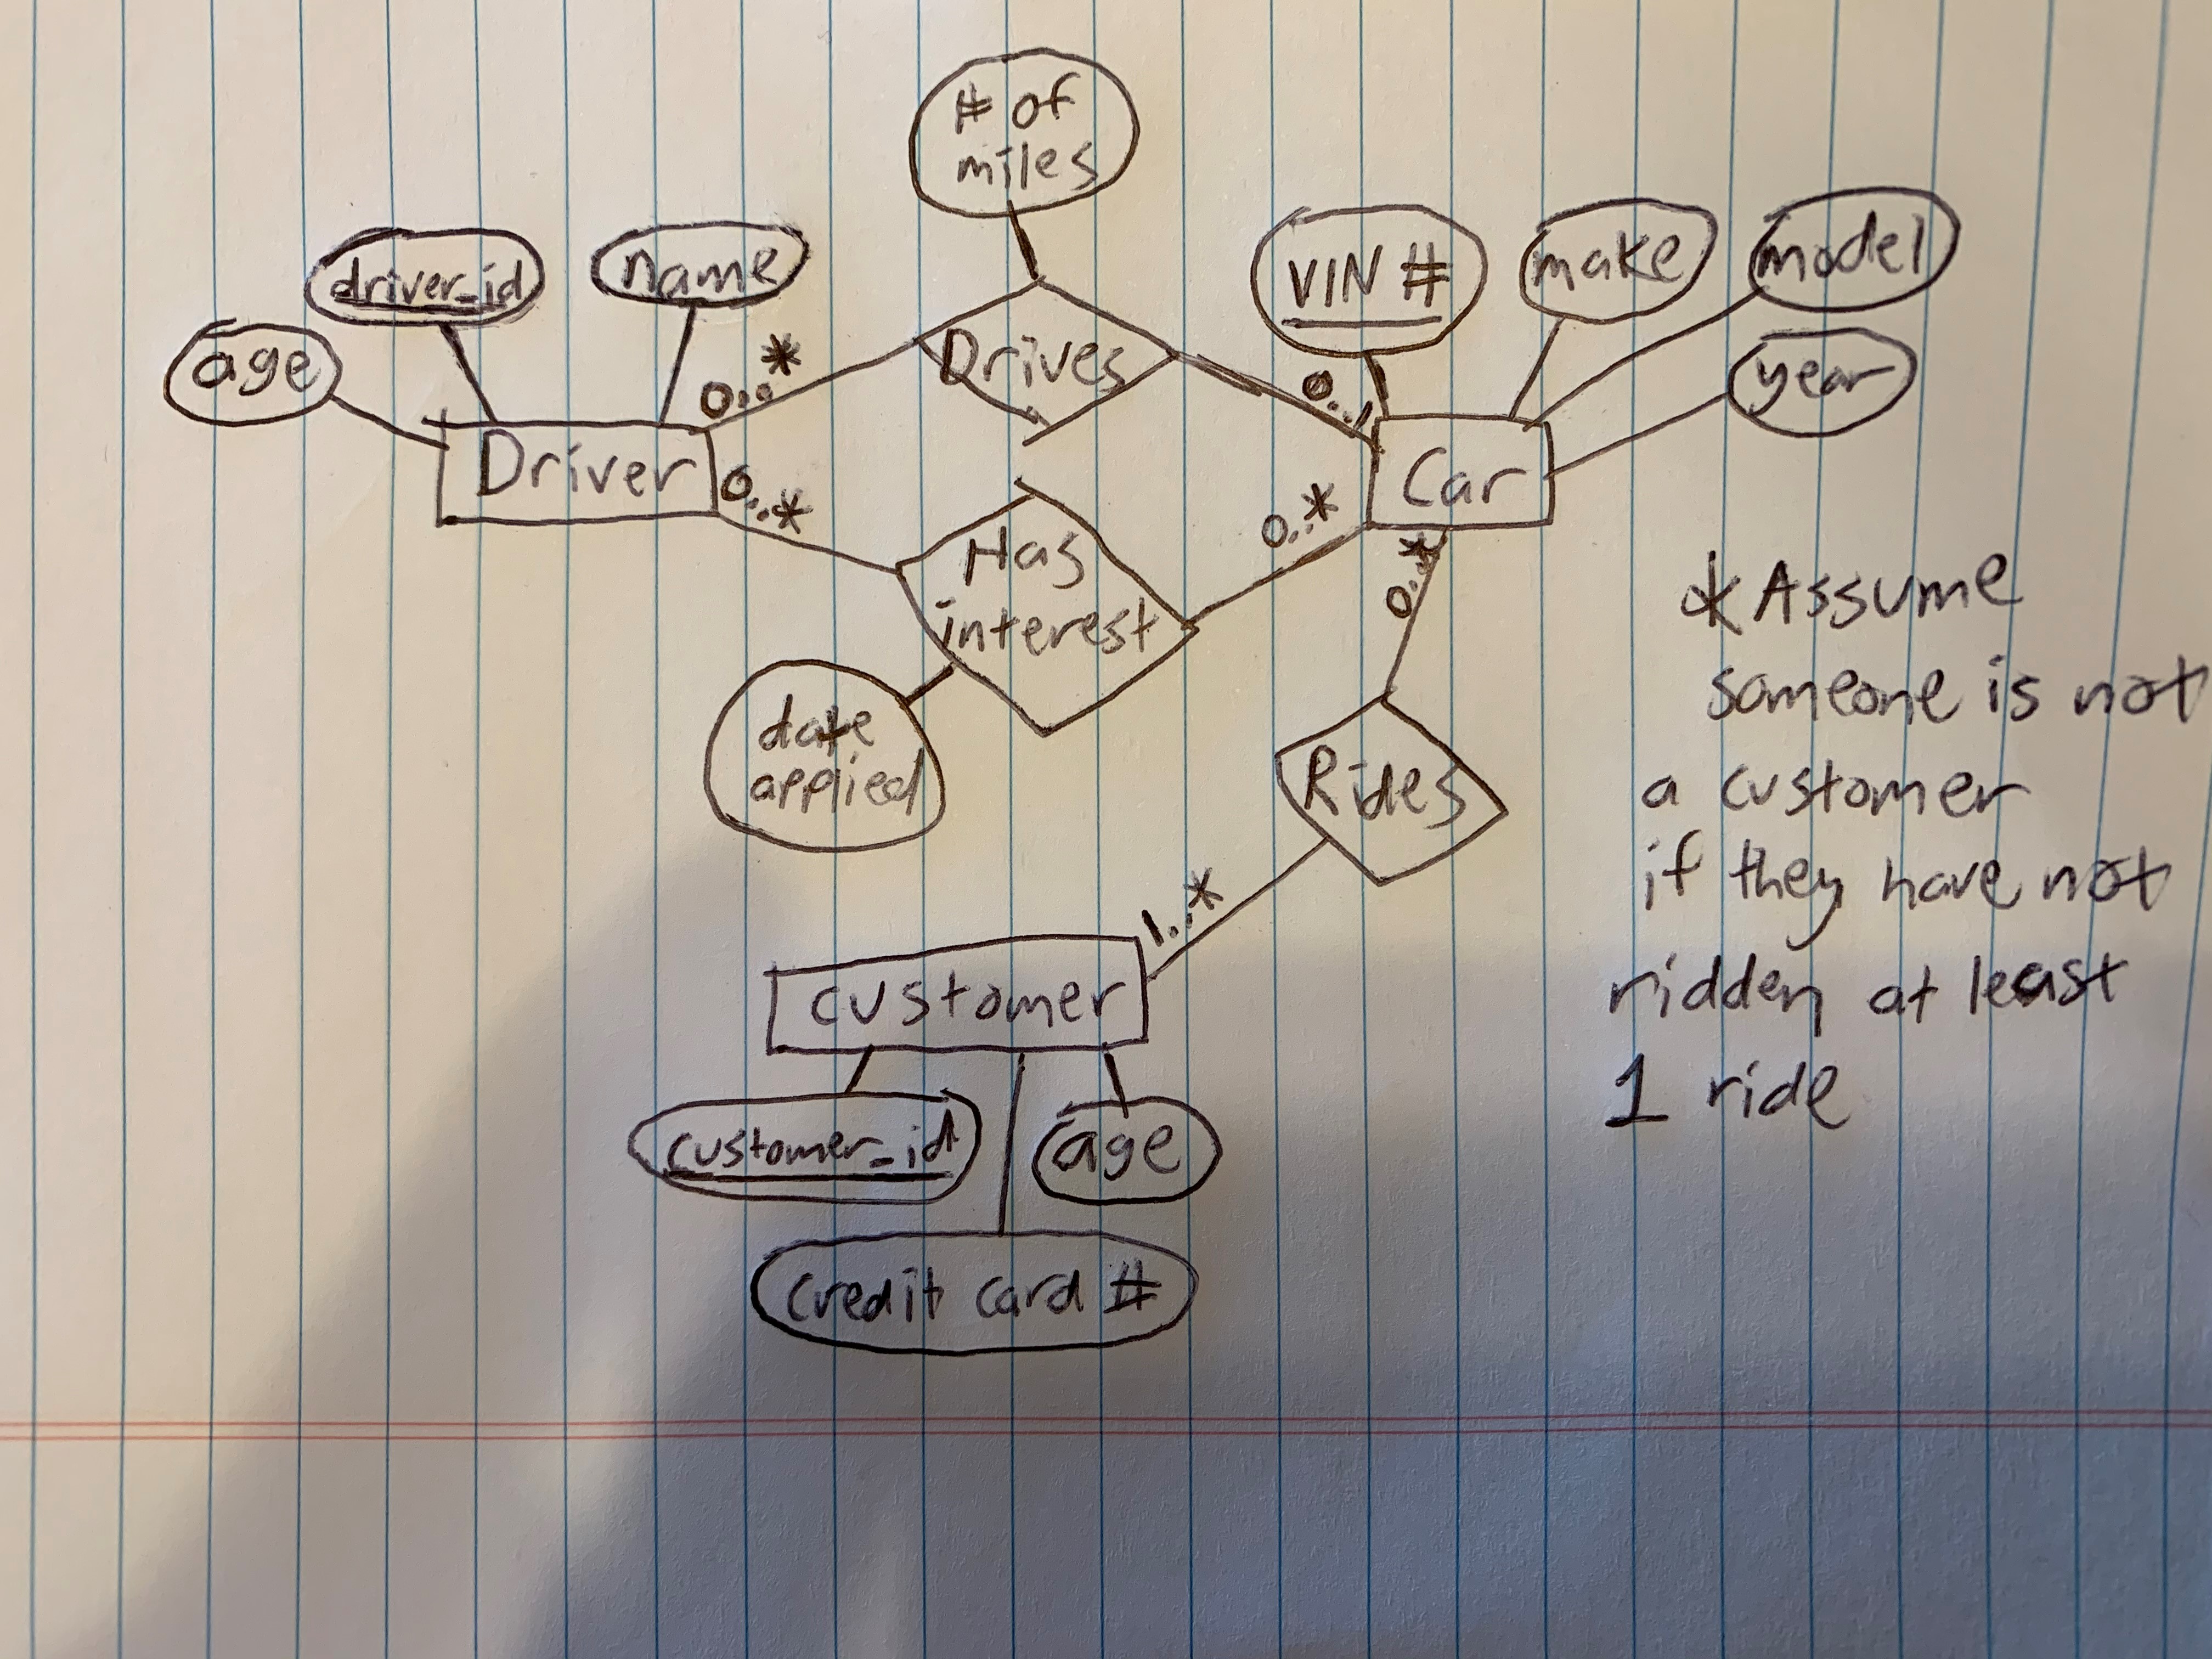 # of
miles
driver_id
name
age
VIN #
make
model
year
0..*
Drives
0..1
Driver
Car
0..*
0..*
0..*
Has
interest
date
applied
Rides
1..*
customer
customer_id
age
credit card #
*Assume
someone is not
a customer
if they have not
ridden at least
1 ride